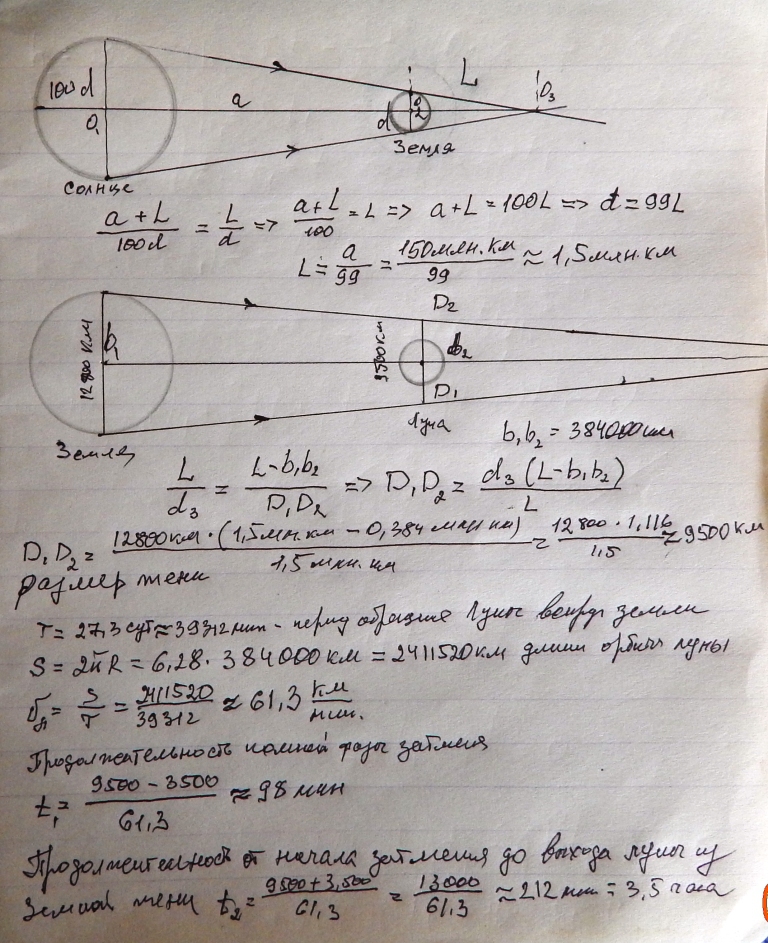 100 d
O₁
a
d
O₂
L
O₃
Земля
Солнце
(a + L)/(100d) = L/d => (a+L)/100 = L => a+L = 100L => d = 99L
L = a/99 = 150млн.км/99 ≈ 1,5 млн.км
12800 км
b₁
9500км
D₂
b₂
D₁
Луна
Земля
b₁b₂ = 384000км
L/d₃ = (L-b₁b₂)/(D₁D₂) => D₁D₂ = d₃(L-b₁b₂)/L
D₁D₂ = 12800км·(1,5мн.км - 0,384 млн км)/(1,5 млн.км) ≈ 12800·1,116/1,5 ≈ 9500 км
размер тени
T = 27,3 сут ≈ 39312 мин - период обращения Луны вокруг земли
S = 2πR = 6,28 · 384000 км = 2411520 км длина орбиты луны
= S/T = 2411520/39312 ≈ 61,3 км/мин.
Продолжительность полной фазы затмения
t₁ = (9500 - 3500)/61,3 ≈ 98 мин
Продолжительность от начала затмения до выхода луны из
земной тени t₂ = (9500+3,500)/61,3 = 13000/61,3 ≈ 212 мин = 3,5 часа